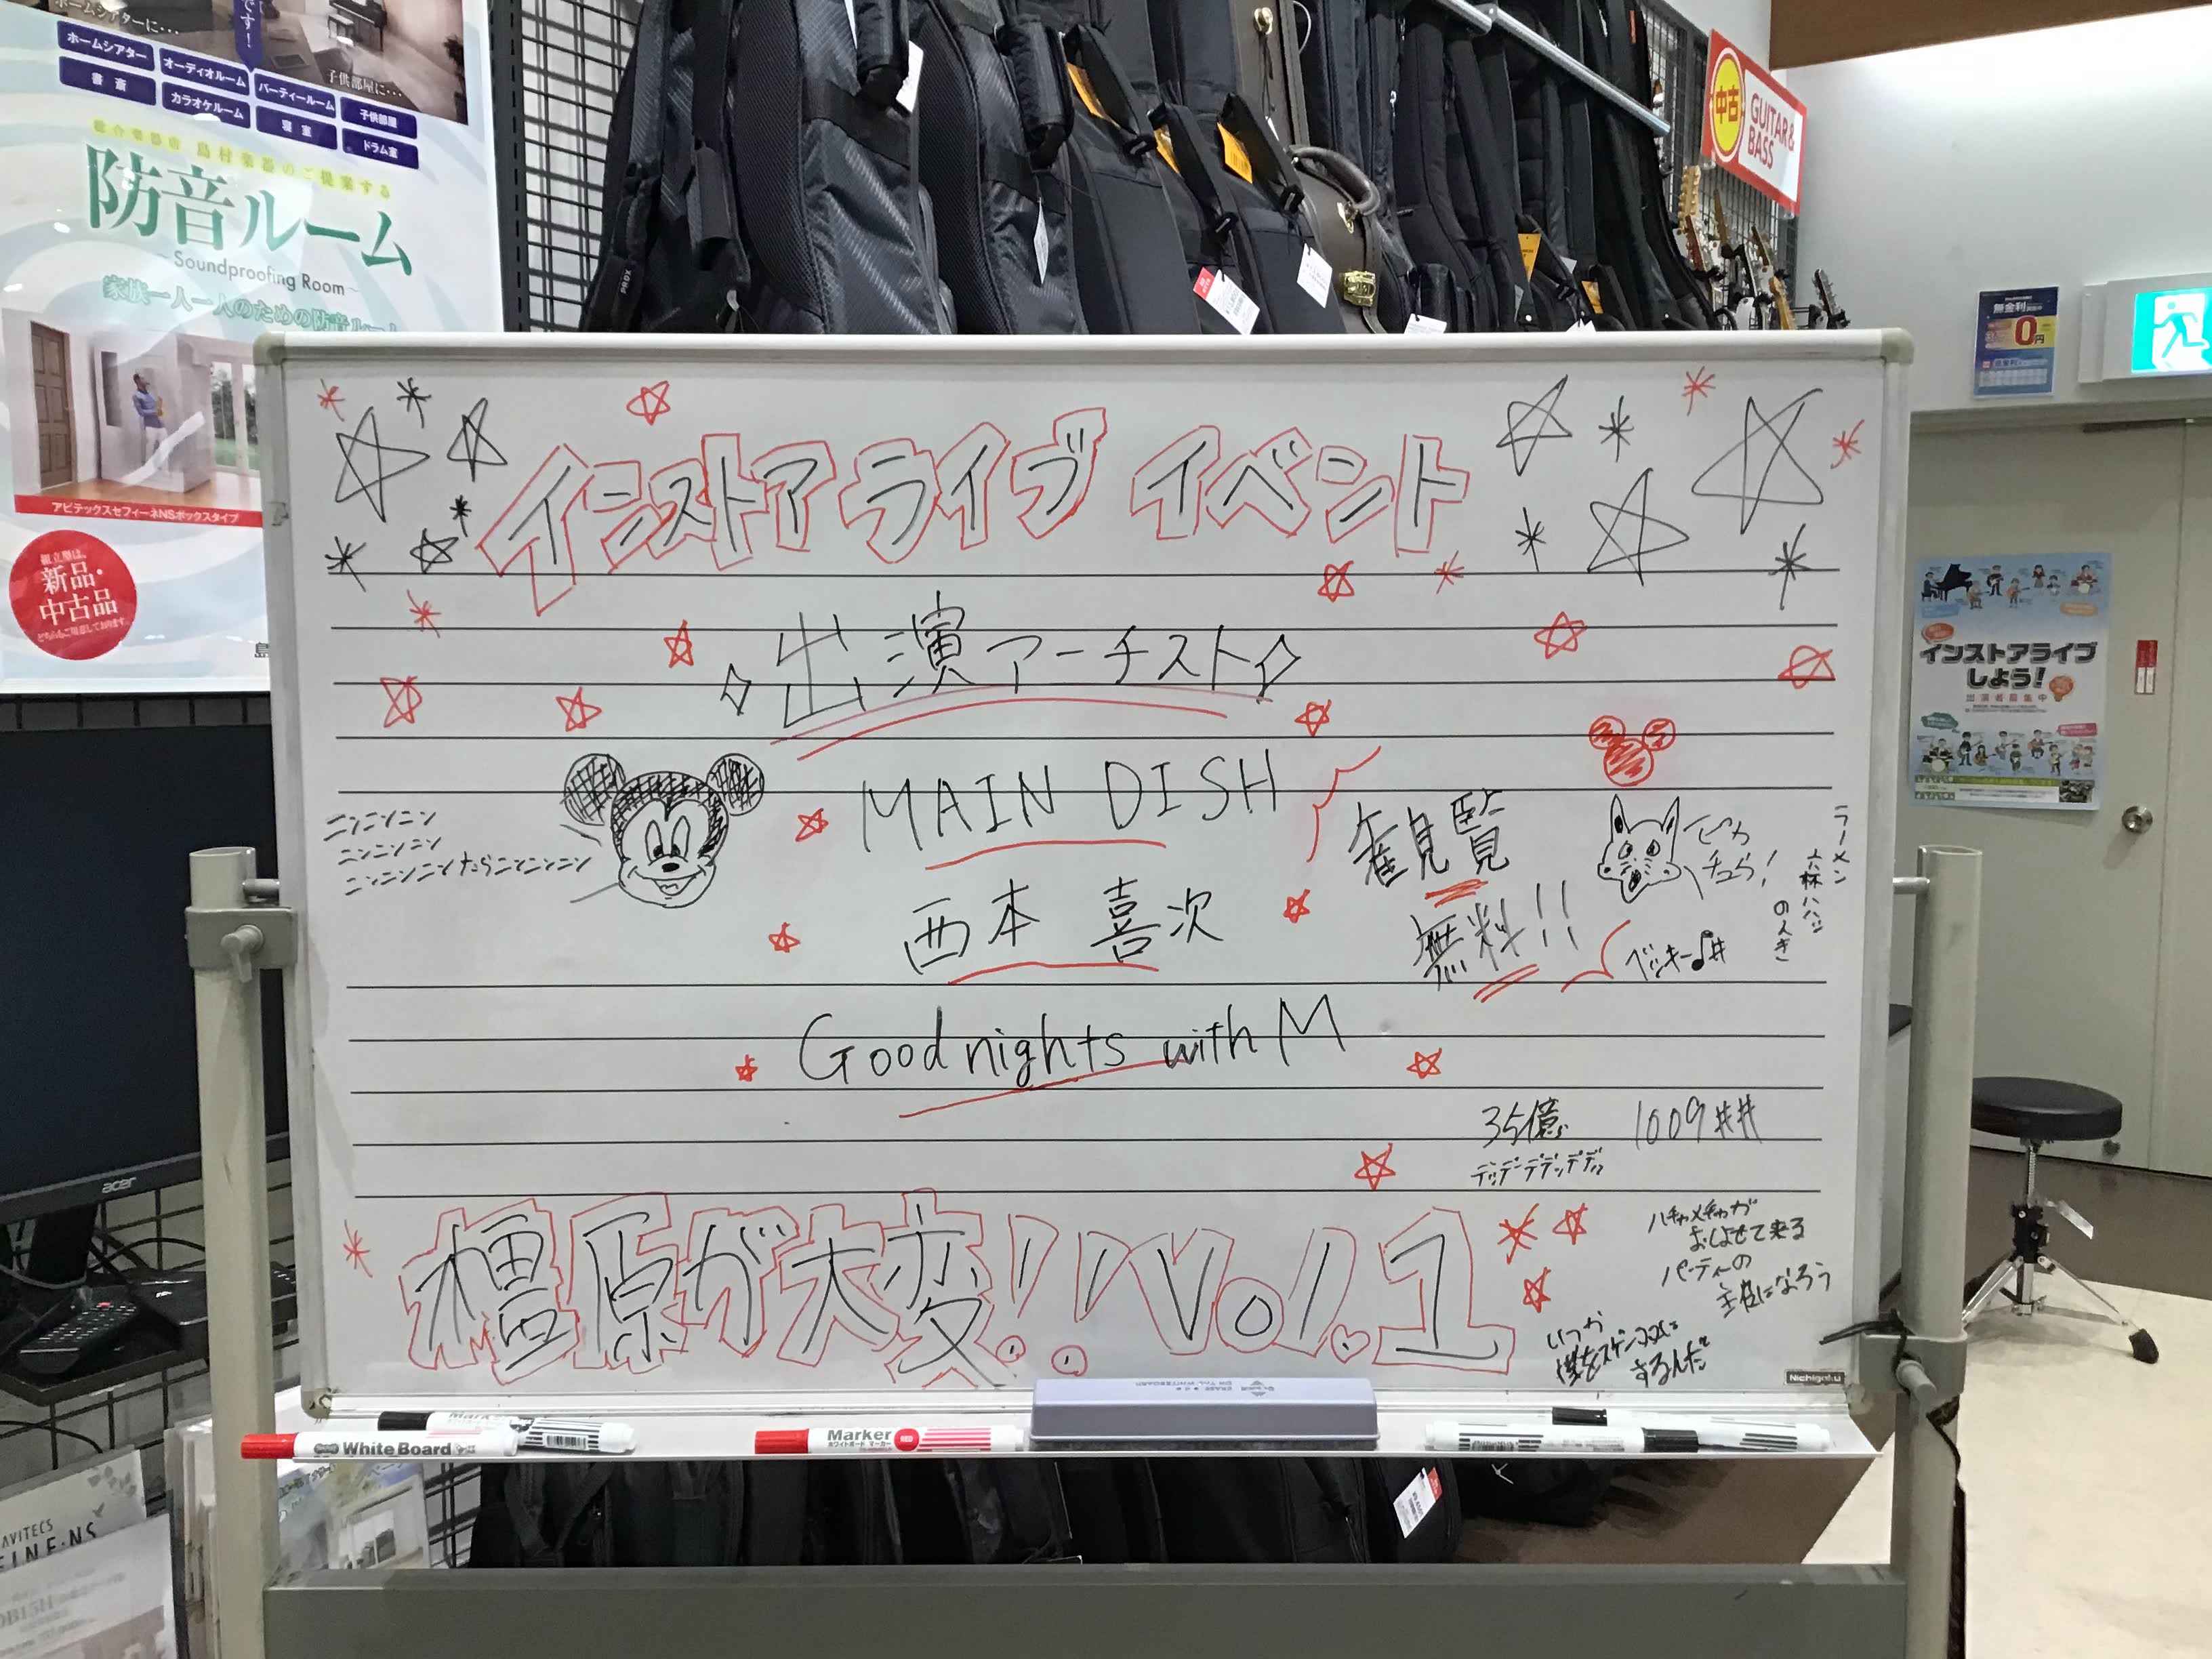 ホームシアターに・・・
です!
子供部屋に・・・
ホームシアター
オーディオルーム
パーティールーム
子供部屋
書斎
カラオケルーム
寝室
ドラム室
総合楽器店 島村楽器のご提案する
防音ルーム
~Soundproofing Room~
家族一人一人のための防音ルーム
アビテックスセフィーネNSボックスタイプ
組立型は、
新品・
中古品
どちらもご用意しております。
島
PRDX
中古
GUITAR&
BASS
無金利
0円
インストアライブ
しよう!
出演者募集中
インストアライブイベント
出演アーチスト
MAIN DISH
西本 喜次
Good nights with M
観覧
無料!!
ニンニンニン
ニンニンニン
ニンニンニンたらニンニンニン
ピカ
チュう!
ラーメン
六杯ハハッ
のんき
ベッキー♪#
35億
1009##
デッデーデデッデデッ
橿原が大変!! Vol.1
ハチャメチャが
おしよせて来る
パーティーの
主役になろう
いつか
僕をスゲー
するんだ
Nichigaku
acer
WhiteBoard
Marker
ホワイトボードマーカー
RED
AVITECS